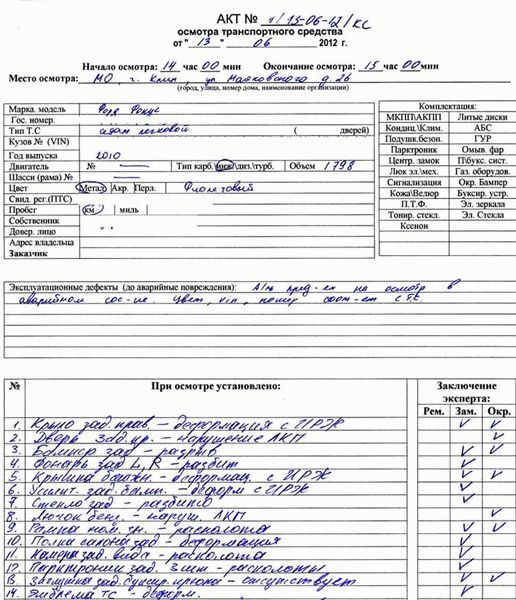 АКТ № 1/13-06-12/КС
осмотра транспортного средства
от "13" 06 2012 г.
Начало осмотра: 14 час 00 мин Окончание осмотра: 15 час 00 мин
Место осмотра: МО, г. Клин, ул Маяковского д. 26
(город, улица, номер дома, наименование организации)
Марка. модель Форд Фокус
Гос. номер.
Тип Т.С седан легковой ( дверей)
Кузов № (VIN)
Год выпуска 2010
Двигатель № — Тип карб.\инж\диз.\турб. Объем 1798
Шасси (рама) № —
Цвет Метал\Акр. Перл. Фиолетовый
Свид. рег.(ПТС)
Пробег км миль
Собственник
Довер. лицо
Адрес владельца
Заказчик
Комплектация:
МКПП\АКПП Литые диски
Кондиц\Клим. АБС
Подушк.безоп. ГУР
Парктроник Омыв. фар
Центр. замок П\букс. сист.
Люк эл.\мех. Газ. оборудов.
Сигнализация Окр. Бампер
Кожа\Велюр Буксир. устр.
П.Т.Ф. Эл. зеркала
Тонир. стекл. Эл. Стекла
Ксенон
Эксплуатационные дефекты (до аварийные повреждения): А/м пред-ен на осмотр в
аварийном сос-ие. Цвет, vin, номер соот-ет С.Т.С.
№ При осмотре установлено: Заключение эксперта:
Рем. Зам. Окр.
1. Крыло зад. прав. – деформация с ИРЖ V V
2. Дверь зад. пр. – нарушение ЛКП V
3. Бампер зад – разрыв V V
4. Фонарь зад L, R – разбит V
5. Крышка багажн. – деформац. с ИРЖ V V
6. Усилит. зад. бамп. – деформ с ИРЖ V
7. Стекло зад – разбито V
8. Лючок бенз. – наруш. ЛКП V
9. Рамка ном. зн. – расколота V V
10. Полка салона зад – деформация V
11. Камера зад. вида – расколота V
12. Парктроники зад. 3 шт – расколоты V
13. Заглушка зад. буксир. крюка – отсутствует V V
14. Эмблема ТС – деформ. V